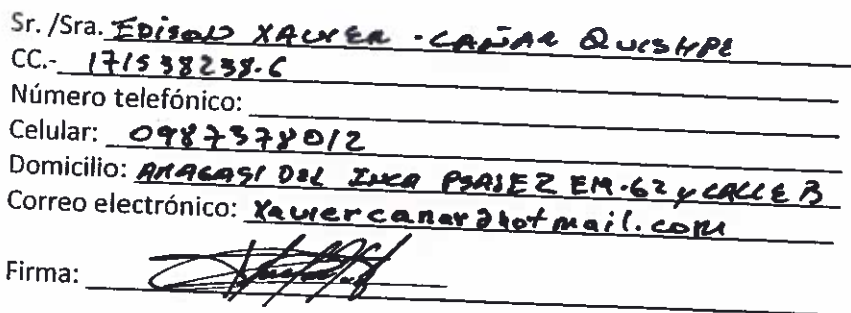 Sr. /Sra. EDISON XAVIER - CAÑAR QUISHPE
CC.- 171538238-6
Número telefónico:
Celular: 0987378012
Domicilio: AMAGASI DEL INCA PSAJEZ EM-62 y CALLE B
Correo electrónico: Xaviercanar@hotmail.com
Firma: